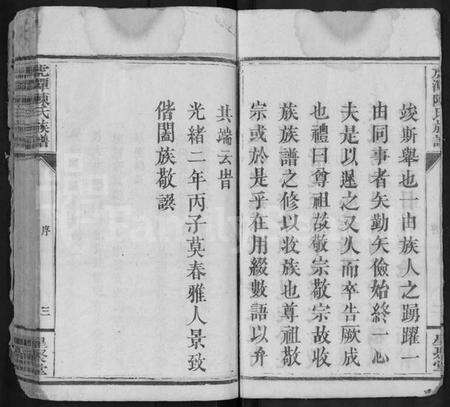 竣斯舉也一由族人之踴躍一
由同事者矢勤矢儉始終一心
夫是以遲之又久而卒告厥成
也禮曰尊祖故敬宗敬宗故收
族族譜之修以收族也尊祖敬
宗或於是乎在用綴數語以弁
其端云旹
光緒二年丙子莫春雅人景致
偕闔族敬譔
虎潭陳氏族譜
序
三